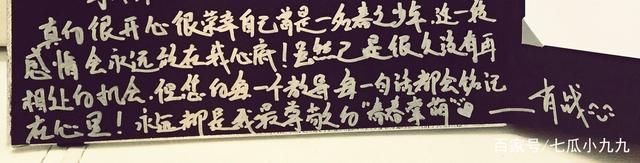 真的很开心很荣幸自己曾是一名春之少年.这一段
感情会永远放在我心底!虽然已是很久没有再
相处的机会.但您的每一个教导每一句话都会铭记
在心里!永远都是我最尊敬的
百家号/七瓜小九九